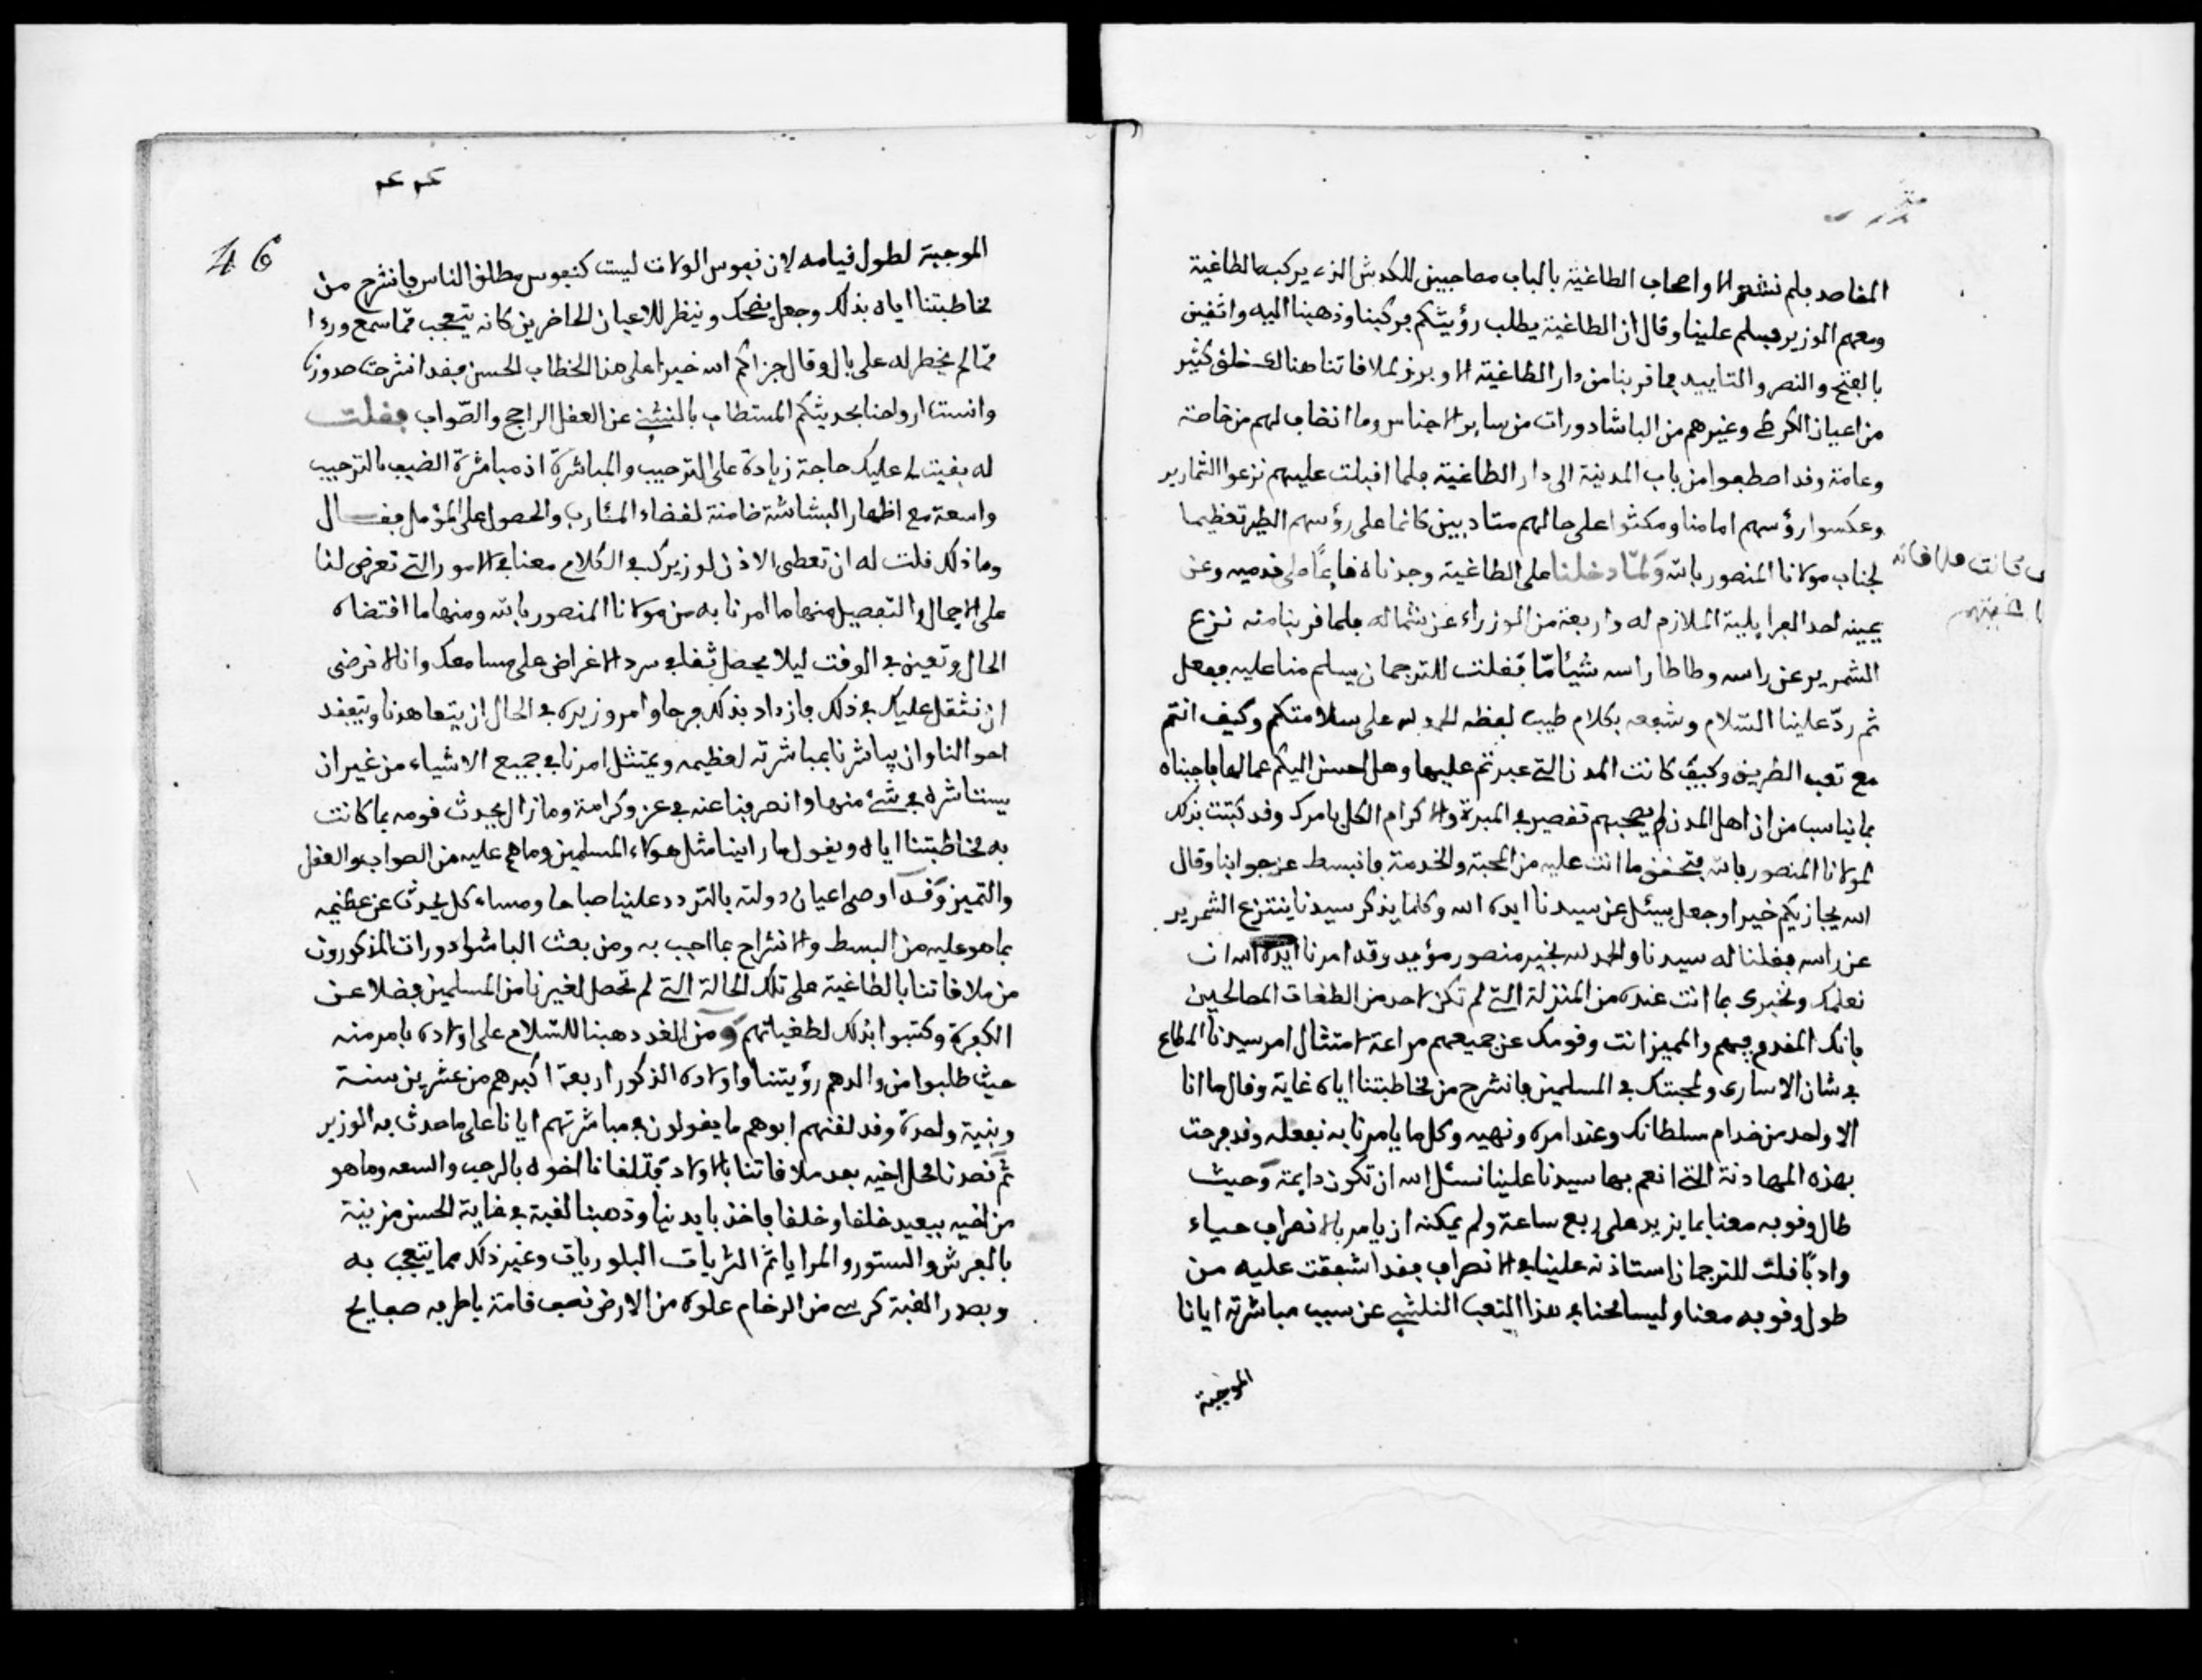 المقاصد فلم نشعر الا واصحاب الطاغية بالباب مصاحبين للكدش الذي يركبه الطاغية
ومعهم الوزير فسلم علينا وقال ان الطاغية يطلب رؤيتكم فركبنا وذهبنا اليه واثقين
بالفتح والنصر والتاييد فما قربنا من دار الطاغية الا وبرز لملاقاتنا هنالك خلق كثير
من اعيان الكرطي وغيرهم من الباشادورات من ساير الاجناس وما انضاف لهم من خاصة
وعامة وقد اصطفوا من باب المدينة الى دار الطاغية فلما اقبلت عليهم نزعوا الشمارير
وعكسوا رؤسهم امامنا ومكثوا على حالهم متادبين كانما على رؤسهم الطير تعظيما
لجناب مولانا المنصور بالله ولمّا دخلنا على الطاغية وجدناه قايمًا على قدميه وعن
يمينه احد الفرايلية الملازم له واربعة من الوزراء عن شماله فلما قربنا منه نزع
الشمرير عن راسه وطاطا راسه شيئا مّا فقلت للترجمان يسلم منا عليه ففعل
ثم ردّ علينا السّلام وشفعه بكلام طيب لفظه الحمد لله على سلامتكم وكيف انتم
مع تعب الطريق وكيف كانت المدن التي عبرتم عليها وهل احسن اليكم عمالها فاجبناه
بما يناسب من ان اهل المدن لم يصحبهم تقصير في المبرة والاكرام الكل بامرك وقد كتبت بذلك
لمولانا المنصور بالله فتحقق ما انت عليه من المحبة والخدمة فانبسط عن جوابنا وقال
الله يجازيكم خيرا وجعل يسئل عن سيدنا ايده الله وكلما يذكر سيدنا ينتزع الشمرير
عن راسه فقلنا له سيدنا والحمد لله بخير منصور مؤيد وقد امرنا ايده الله ان
نعلمك ونخبرك بما انت عنده من المنزلة التي لم تكن لاحد من الطغات المصالحين
فانك المقدم فيهم والمميز انت وقومك عن جميعهم مراعة لامتثال امر سيدنا المطاع
في شان الاسارى ولمحبتك في المسلمين فانشرح من مخاطبتنا اياه غاية وقال ما انا
الا واحد من خدام سلطانك وعند امره ونهيه وكل ما يامرنا به نفعله وقد فرحت
بهذه المهادنة التي انعم بها سيدنا علينا نسئل الله ان تكون دايمة وحيث
طال وقوفه معنا بما يزيد على ربع ساعة ولم يمكنه ان يامر بالانصراف حياء
وادبًا قلت للترجمان استاذنه علينا في الانصراف فقد اشفقت عليه من
طول وقوفه معنا وليسامحنا في هذا التعب الناشئ عن سبب مباشرته ايانا
الموجبة
46
الموجبة لطول قيامه لان نفوس الولات ليست كنفوس مطلق الناس فانشرح من
مخاطبتنا اياه بذلك وجعل يضحك وينظر للاعيان الحاضرين كانه يتعجب ممّا سمع ورءا
ممّا لم يخطر له على بال وقال جزاكم الله خيرا على هذا الخطاب الحسن فقد انشرحت صدورنا
وانست ارواحنا بحديثكم المستطاب بالنشئ عن العقل الراجح والصّواب فقلت
له بقيت لي عليك حاجة زيادة على الترحيب والمباشرة اذ مباشرة الضيف بالترحيب
واسعة مع اظهار البشاشة ضامنة لقضاء المئارب والحصول على المؤمل فقال
وما ذلك قلت له ان تعطى الاذن لوزيرك في الكلام معنا في الامور التي تعرض لنا
على الاجمال والتفصيل منها ما امرنا به من مولانا المنصور بالله ومنها ما اقتضاه
الحال وتعين في الوقت ليلا يحصل ثقل في سرد الاغراض على مسامعك وانا لا نرضى
ان نثقل عليك في ذلك فازداد بذلك فرحا وامر وزيره في الحال ان يتعاهدنا ويتفقد
احوالنا وان يباشرنا بمباشرته لعظيمه ويمتثل امرنا في جميع الاشياء من غير ان
يستاشره في شئ منها وانصرفنا عنه في عز وكرامة وما زال يحدث قومه بما كانت
به مخاطبتنا اياه ويقول ما راينا مثل هولاء المسلمين وما هم عليه من الصواب والعقل
والتميز وقد اوصى اعيان دولته بالتردد علينا صباحا ومساء كل يحدث عن عظيمه
بما هو عليه من البسط والانشراح بما اجيب به ومن بعث الباشدورات المذكورون
من ملاقاتنا بالطاغية على تلك الحالة التي لم تحصل لغيرنا من المسلمين فضلا عن
الكفرة وكتبوا بذلك لطغياتهم ومن الغد ذهبنا للسّلام على اولاده بامر منه
حيث طلبوا من والدهم رؤيتنا واولاده الذكور اربعة اكبرهم من عشرين سنة
وبنية واحدة وقد لقنهم ابوهم ما يقولون في مباشرتهم ايانا على ما حدث به الوزير
ثم قصدنا محل اخيه بعد ملاقاتنا بالاولاد فتلقانا اخوه بالرحب والسعه وما هو
من اخيه ببعيد خلقا وخلقا فاخذ بايدنيا وذهبنا لقبة في غاية الحسن مزينة
بالفرش والستور والمرايا ثم الثريات البلوريات وغير ذلك مما يتعجب به
وبصدر القبة كرسي من الرخام علوه من الارض نصف قامة باطرافه صفايح